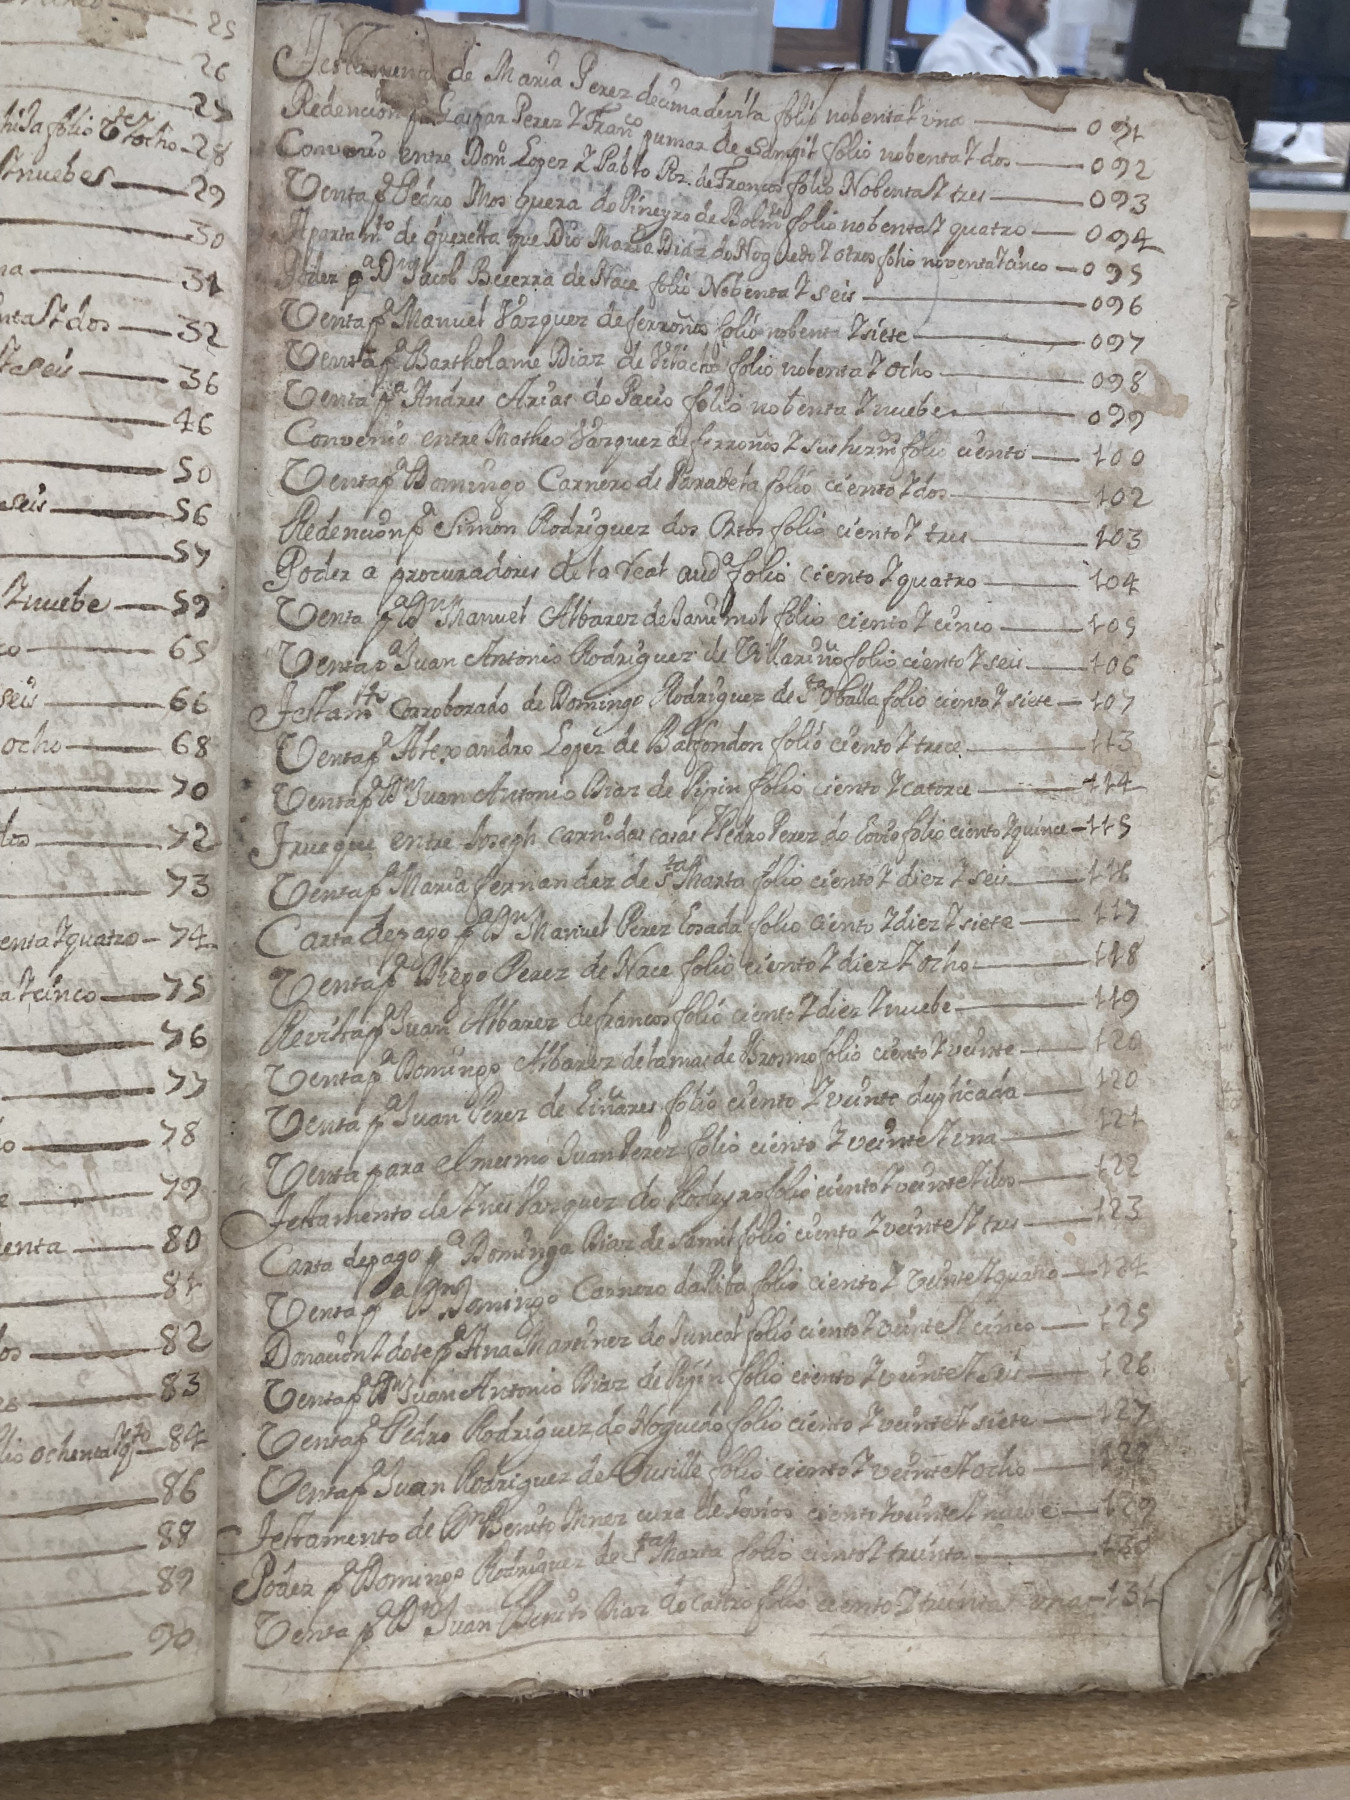 25
26
27
folio Ve tocho 28
Y nuebes 29
30
31
Y dos 32
Y seis 36
46
50
seis 56
57
Y nuebe 59
65
seis 66
ocho 68
70
72
73
enta Y quatro 74
Y cinco 75
76
77
78
79
enta 80
81
82
83
folio ochenta Y qto 84
86
88
89
90
Testamento de Maria Perez decima de vita folio nobenta Y una 091
Redencion pa Gaspar Perez Y Franco pumar de Samgil folio nobenta Y dos 092
Convenio entre Domo Lopez Y Pablo Rz. de Francos folio Nobenta Y tres 093
Venta pa Pedro Mosquera do Pineyro de Bolmte folio nobenta Y quatro 094
Apartamto de querella que Dio Maria Diaz do Noguedo Y otros folio noventa Y cinco 095
Poder pa Dn Jacob Becerra de Nace folio Nobenta Y seis 096
Venta pa Manuel Vazquez de ferroños folio nobenta Y siete 097
Venta pa Bartholame Diaz de folio nobenta Y ocho 098
Venta pa Andres Arias do Pacio folio nobenta Y nuebe 099
Convenio entre Matheo Vazquez de ferroños Y sus hermos folio ciento 100
Venta pa Domingo Carnero de Paradela folio ciento Y dos 102
Redencion pa Simon Rodriguez dos Ortos folio ciento Y tres 103
Poder a procuradores de la real auda folio ciento Y quatro 104
Venta pa Dn Manuel Albarez de folio ciento Y cinco 105
Venta pa Juan Antonio Rodriguez de Villariño folio ciento Y seis 106
Testamto Corroborado de Domingo Rodriguez de Sta Oballa folio ciento Y siete 107
Venta pa Alexandro Lopez de Balfondon folio ciento Y trece 113
Venta pa Dn Juan Antonio Diaz de Pipin folio ciento Y catorce 114
Trueque entre Joseph Carno das casas Y Pedro Perez do Couso folio ciento Y quince 115
Venta pa Maria Fernandez de Sta Marta folio ciento Y diez Y seis 116
Carta de pago pa Dn Manuel Perez Losada folio ciento Y diez Y siete 117
Venta pa Diego Perez de Nace folio ciento Y diez Y ocho 118
Revista pa Juan Albarez de francos folio ciento Y diez Y nuebe 119
Venta pa Domingo Albarez de lamas de Brosmo folio ciento Y veinte 120
Venta pa Juan Perez de Liñares folio ciento Y veinte duplicada 120
Venta para el mesmo Juan Perez folio ciento Y veinte Y una 121
Testamento de Ines Vazquez do Rodeyro folio ciento Y veinte Y dos 122
Carta de pago pa Dominga Diaz de Samil folio ciento Y veinte Y tres 123
Venta pa Dn Domingo Carnero da Riba folio ciento Y veinte Y quatro 124
Donacion Y dote pa Ana Martinez do Juncal folio ciento Y veinte Y cinco 125
Venta pa Dn Juan Antonio Diaz de Pipin folio ciento Y veinte Y seis 126
Venta pa Pedro Rodriguez do Noguedo folio ciento Y veinte Y siete 127
Venta pa Juan Rodriguez de folio ciento Y veinte Y ocho 128
Testamento de Dn Benito Mnez cura de ciento Y veinte Y nuebe 129
Poder pa Domingo Rodriguez de Sta Marta folio ciento Y treinta 130
Venta pa Dn Juan Benito Diaz do Castro folio ciento Y treinta Y una 131